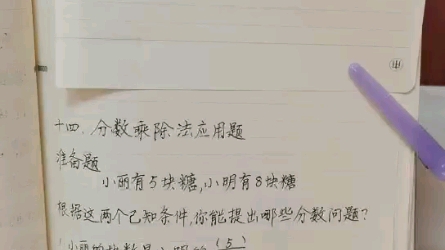 十四.分数乘除法应用题
准备题
小丽有5块糖,小明有8块糖
根据这两个已知条件,你能提出哪些分数问题?
小丽的块数是小明的(5)